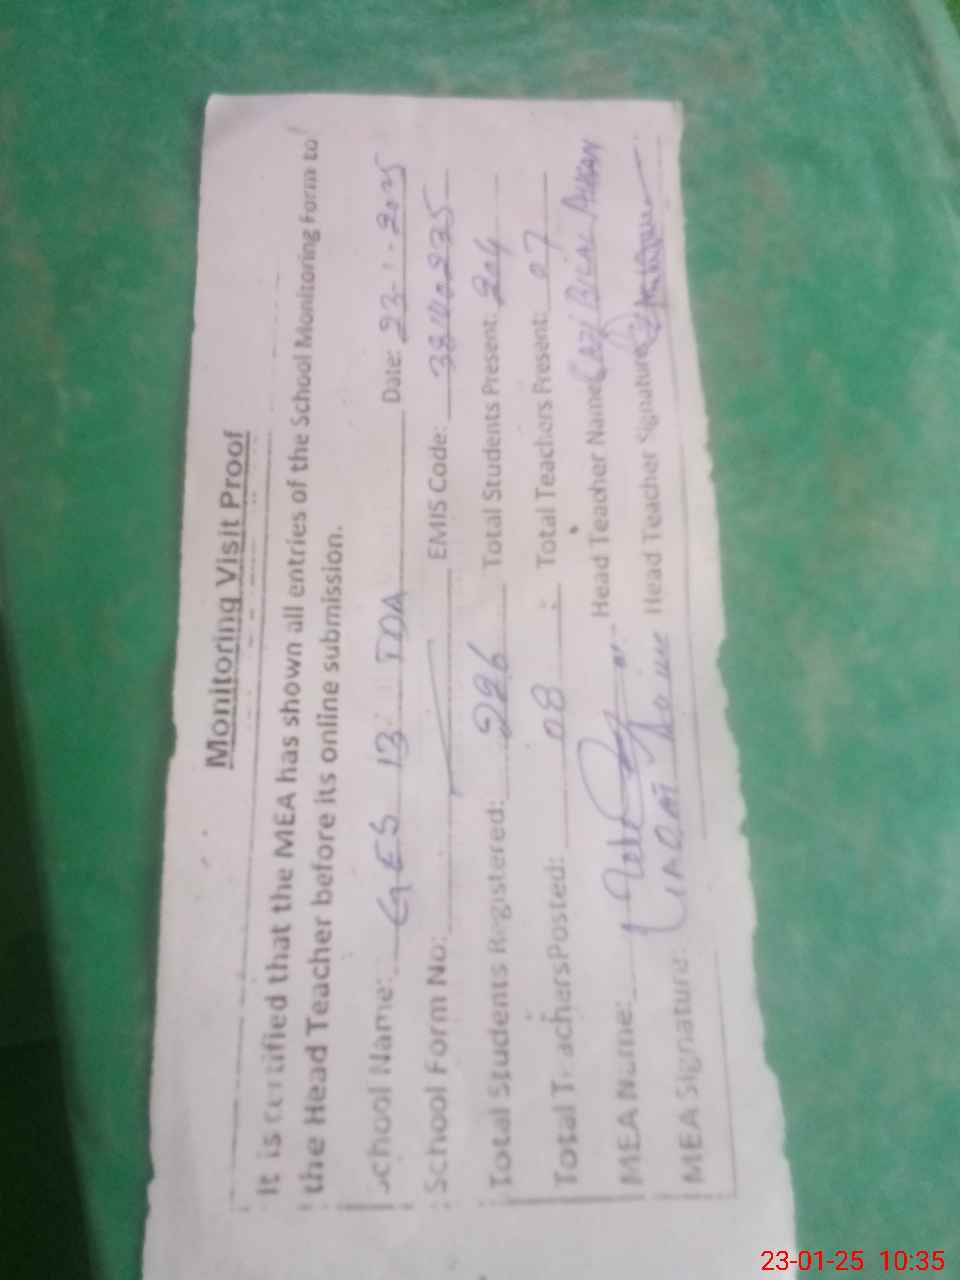 Monitoring Visit Proof
It is certified that the MEA has shown all entries of the School Monitoring Form to
the Head Teacher before its online submission.
School Name: GES 13 TDA Date: 23-1-2025
School Form No: EMIS Code:
Total Students Registered: 226 Total Students Present: 204
Total Teachers Posted: 08 Total Teachers Present: 07
MEA Name: Head Teacher Name:
MEA Signature: Head Teacher Signature
23-01-25 10:35